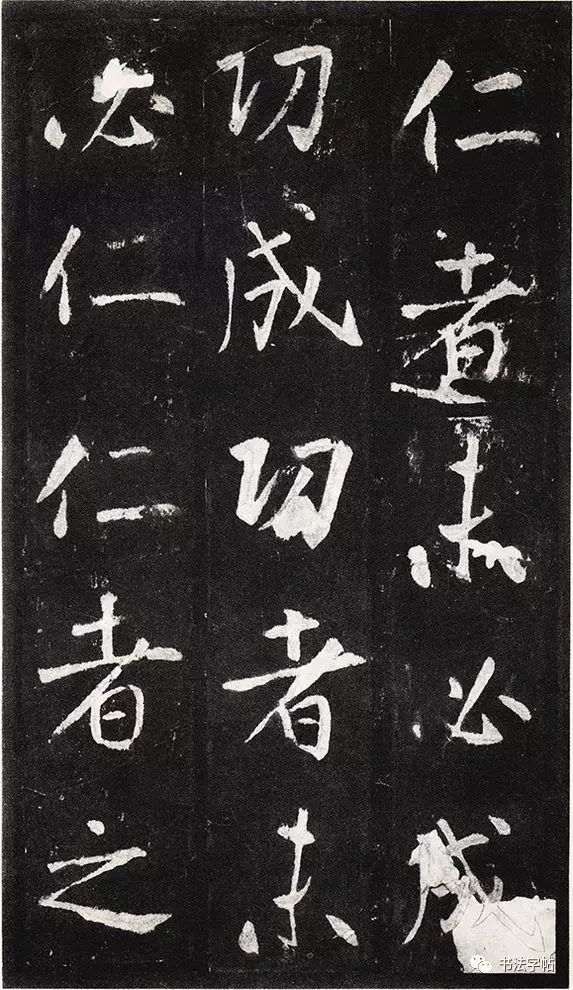 仁者未必成
功成功者未
必仁仁者之
书法字帖